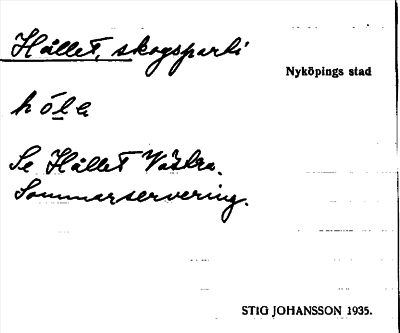 Hållet, skogsparti
Nyköpings stad
hó̲le
Se Hållet Västra.
Sommarservering.
STIG JOHANSSON 1935.